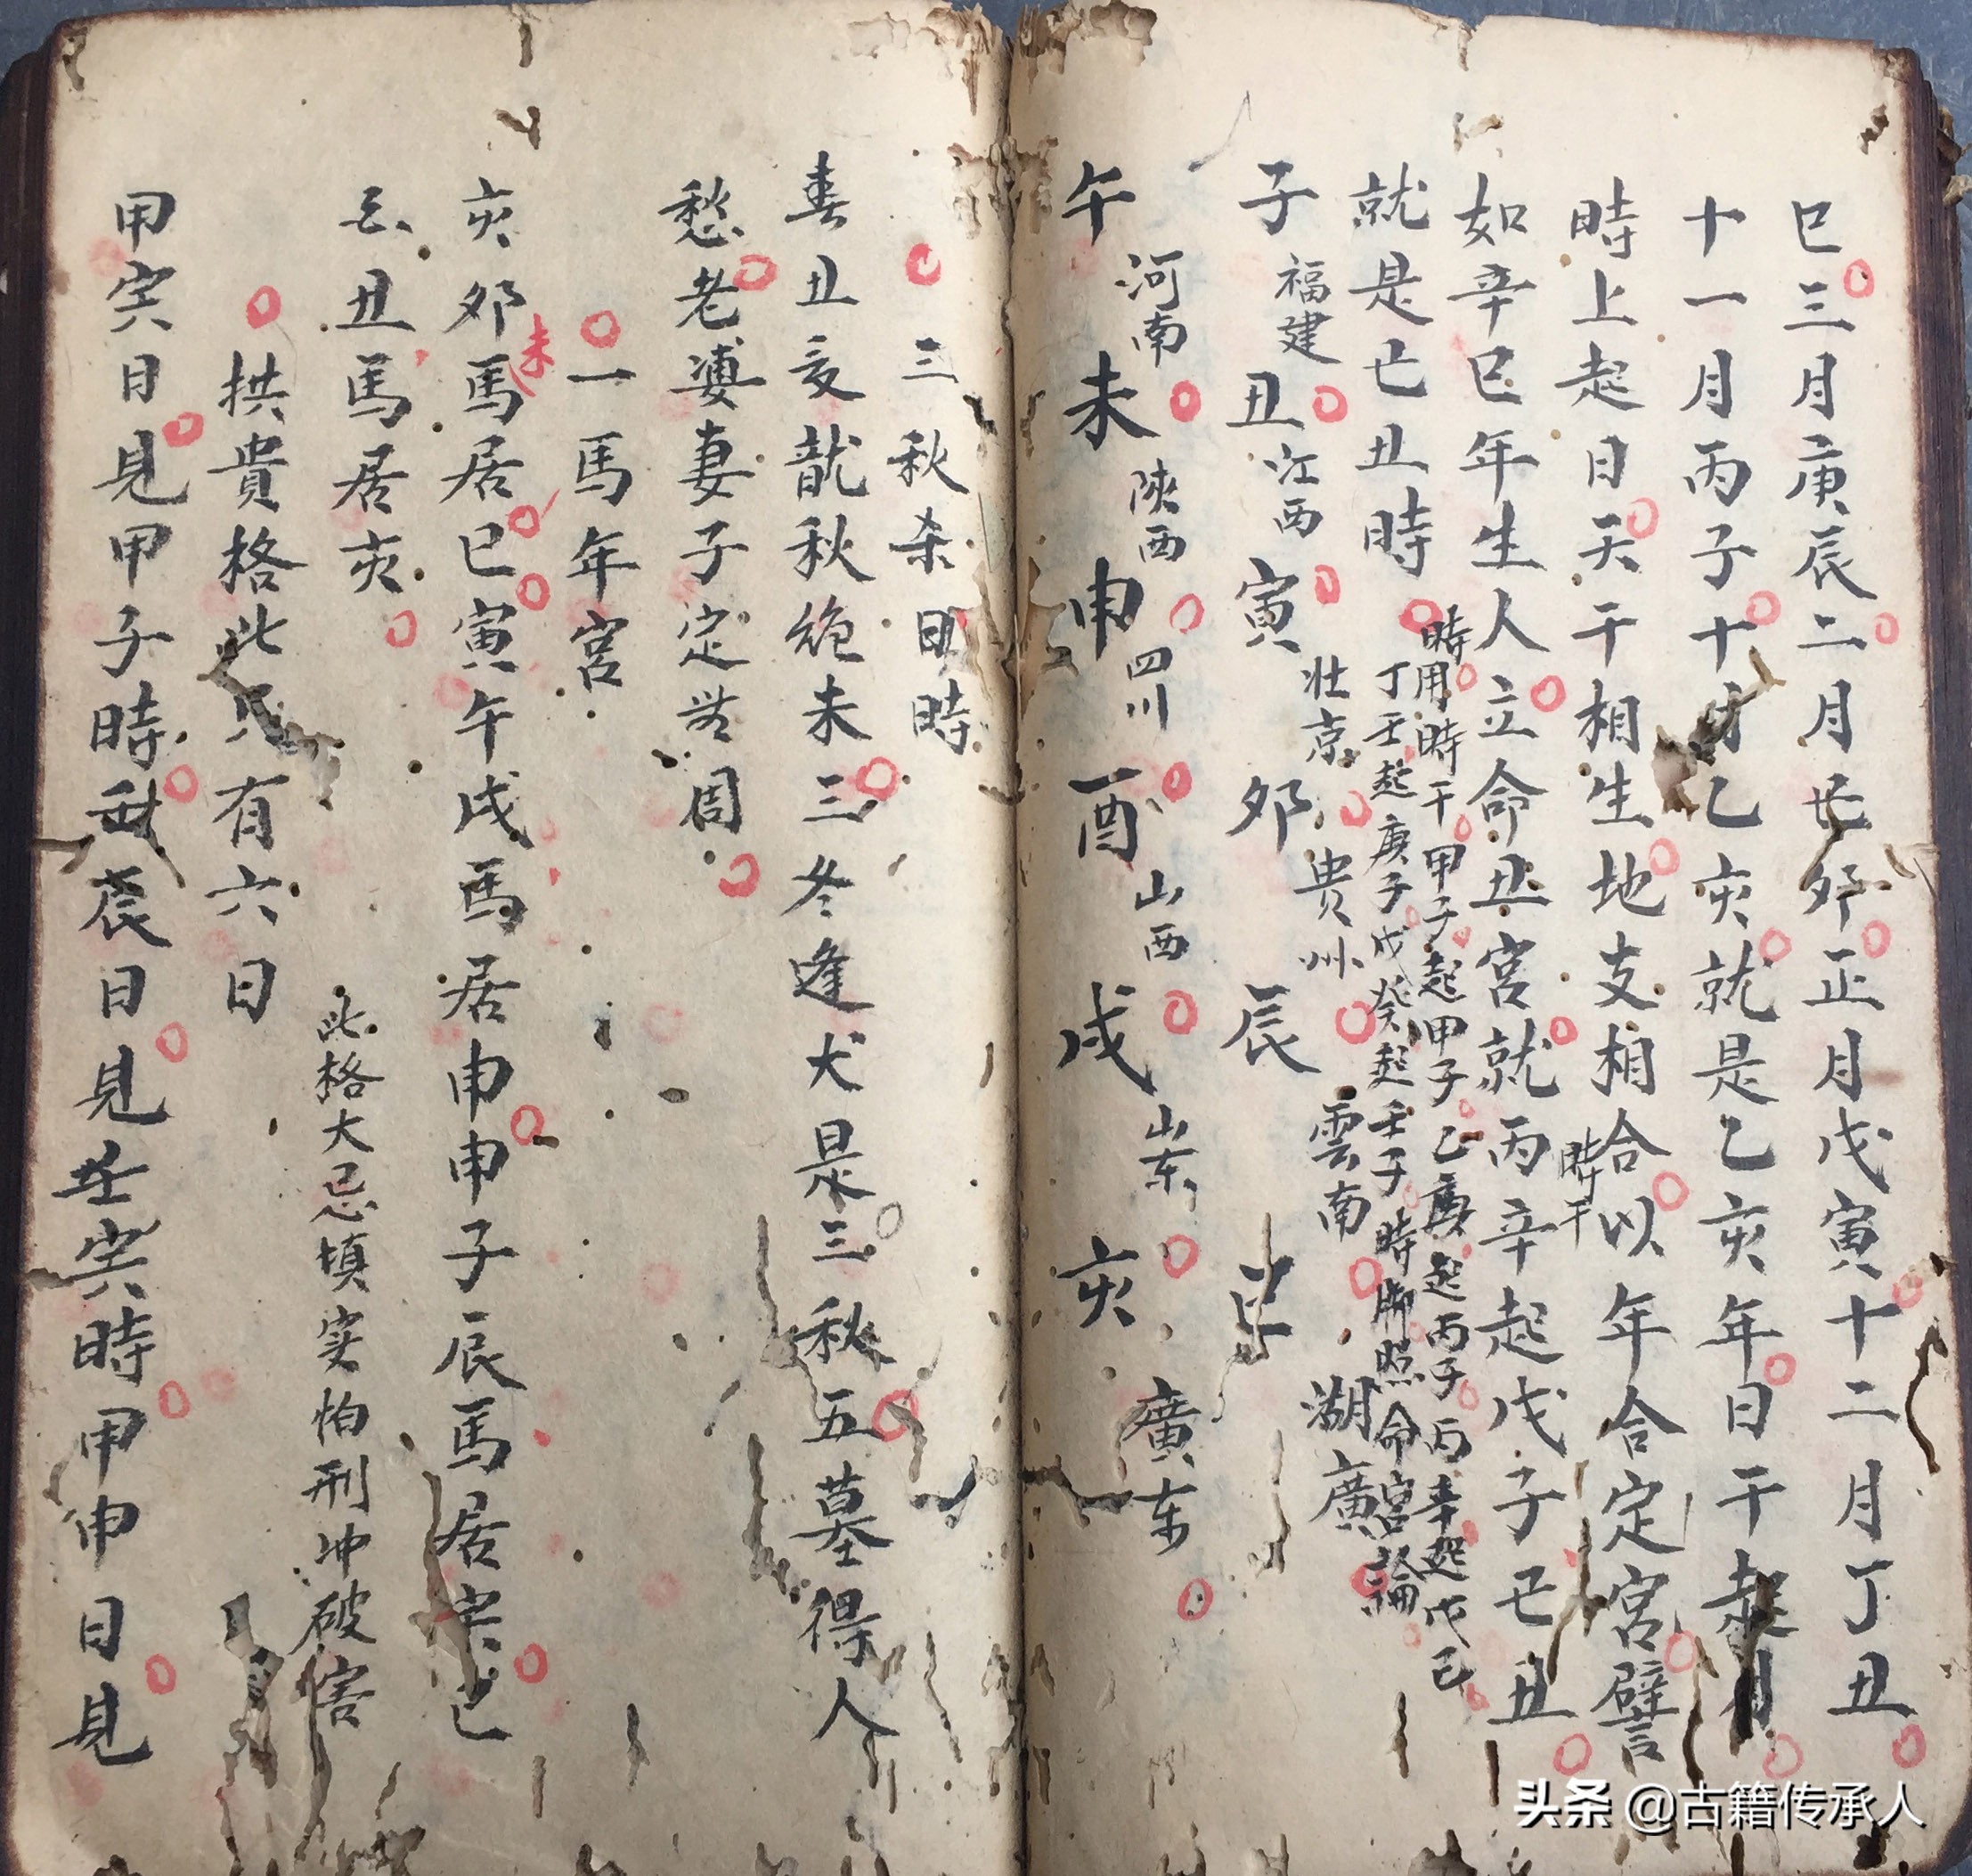 巳三月庚辰二月己卯正月戊寅十二月丁丑
十一月丙子十月乙亥就是乙亥年日干起月
時上起日天干相生地支相合以年合定宮譬
時干
如辛巳年生人立命丑宮就丙辛起戊子己丑
就是己丑時
時用時干甲子起甲子乙庚起丙子丙辛起戊己
丁壬起庚子戊癸起壬子時脚照命宮論
子福建丑江西寅北京卯貴州辰雲南巳湖廣
午河南未陝西申四川酉山西戌山東亥廣東
三秋杀日時
春丑夏龍秋絶未三冬逢犬是三秋五墓得人
愁老婆妻子定世周
一馬年宮
亥卯未馬居巳寅午戌馬居申申子辰馬居寅巳
酉丑馬居亥
此格大忌填实怕刑冲破害
拱貴格此只有六日
甲寅日見甲子時辰日見壬寅時甲申日見
头条 @古籍传承人